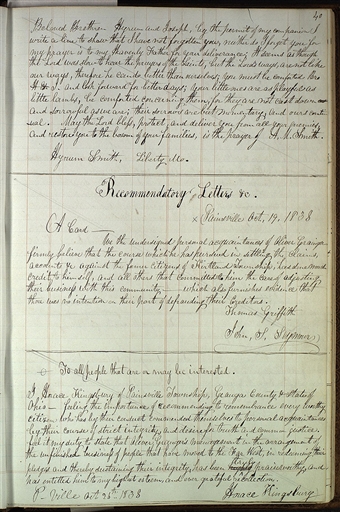 40
Beloved Brother Hyrum and Joseph, by the permit of my companions I
write a line to show that I have not forgotten you; neither do I forget you; for
my prayer is to my Heavenly Father for your deliverance. It seems as though
the Lord was slow to hear the prayers of the Saints, but the Lord's ways, are not like
our ways, therefore he can do better than ourselves. You must be comforted Bro
H & J. and look forward for better days. Your little ones are as playful as
little lambs, be comforted concerning them, for they are not cast down
and sorrowful as we are; their sorrows are but momentary, and ours contin-
ual. May the Lord bless, protect, and deliver you from all your enemies,
and restore you to the bosom of your families, is the prayer of A. M. Smith.
Hyrum Smith, Liberty Mo.
Recommendatory Letters &c.
x Painsville Oct. 19. 1838
A Card
We the undersigned personal acquaintances of Oliver Granger
firmly believe that the course which he has pursued in settling the claims,
accounts &c against the former citizens of Kirtland Township, has done much
credit to himself, and all others that committed to him the care of adjusting
their business with this community which also furnishes evidence that
there was no intention on their part of defrauding their creditors.
Thomas Griffith
John, S. Seymour
To all people that are or may be interested.
I Horace, Kingsbury of Painsville Township, Geauga County & State of
Ohio feeling the importance of recommending to remembrance every worthy
citizen who has by their conduct commended themselves to personal acquaintance
by their course of strict integrity, and desire for truth and common justice.
feel it my duty to state that Oliver Granger's management in the arrangement of
the unfinished business of people that have moved to the Far West, in redeeming their
pledges and thereby sustaining their integrity, has been truly praiseworthy, and
has entitled him to my highest esteem, and ever grateful recollection.
P. Ville Oct 26th 1838 Horace Kingsbury